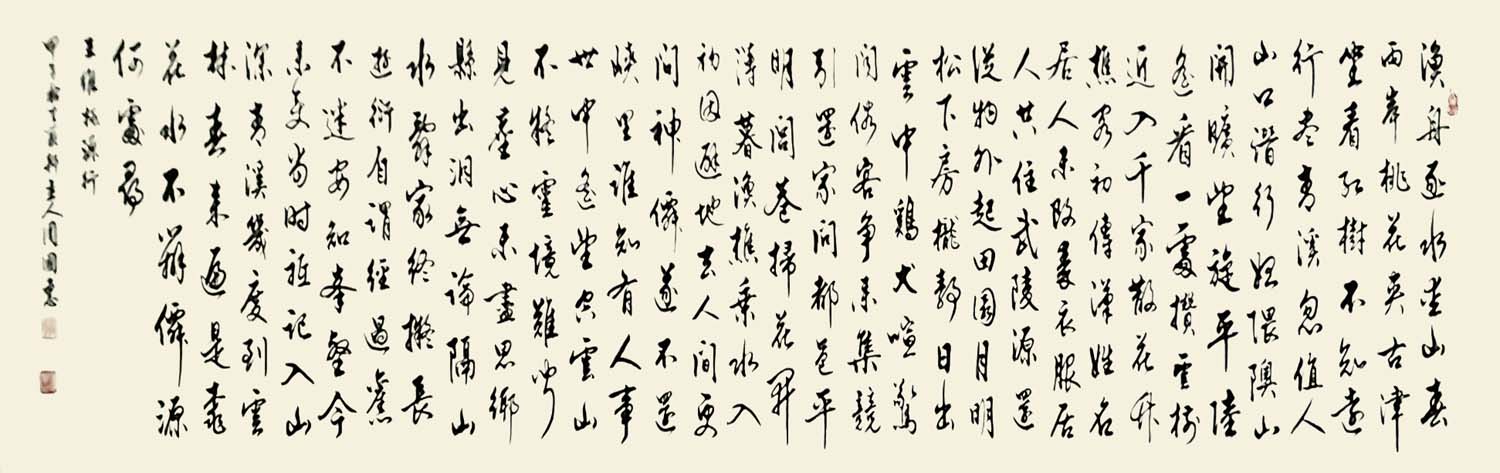 漁舟逐水愛山春
両岸桃花夾古津
坐看紅樹不知遠
行尽青溪忽值人
山口潛行始隈隩山
開曠望旋平陸
遙看一處攢雲樹
近入千家散花竹
樵客初傳漢姓名
居人未改秦衣服居
人共住武陵源還
從物外起田園月明
松下房櫳靜日出
雲中鷄犬喧驚
聞俗客爭來集競
引還家問都邑平
明閭巷掃花開
薄暮漁樵乘水入
初因避地去人間更
問神僊遂不還
峽里誰知有人事
世中遙望空雲山
不疑靈境難聞
見塵心未盡思鄉
縣出洞無論隔山
水辭家終擬長
遊衍自謂經過舊
不迷安知峯壑今
來變當時祇記入山
深青溪幾度到雲
林春來遍是桃
花水不辨僊源
何處尋
王維桃源行
甲子 主人 國